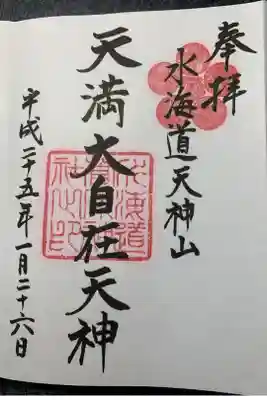 奉拝
水海道天神山
天満大自在天神
平成二十五年一月二十六日